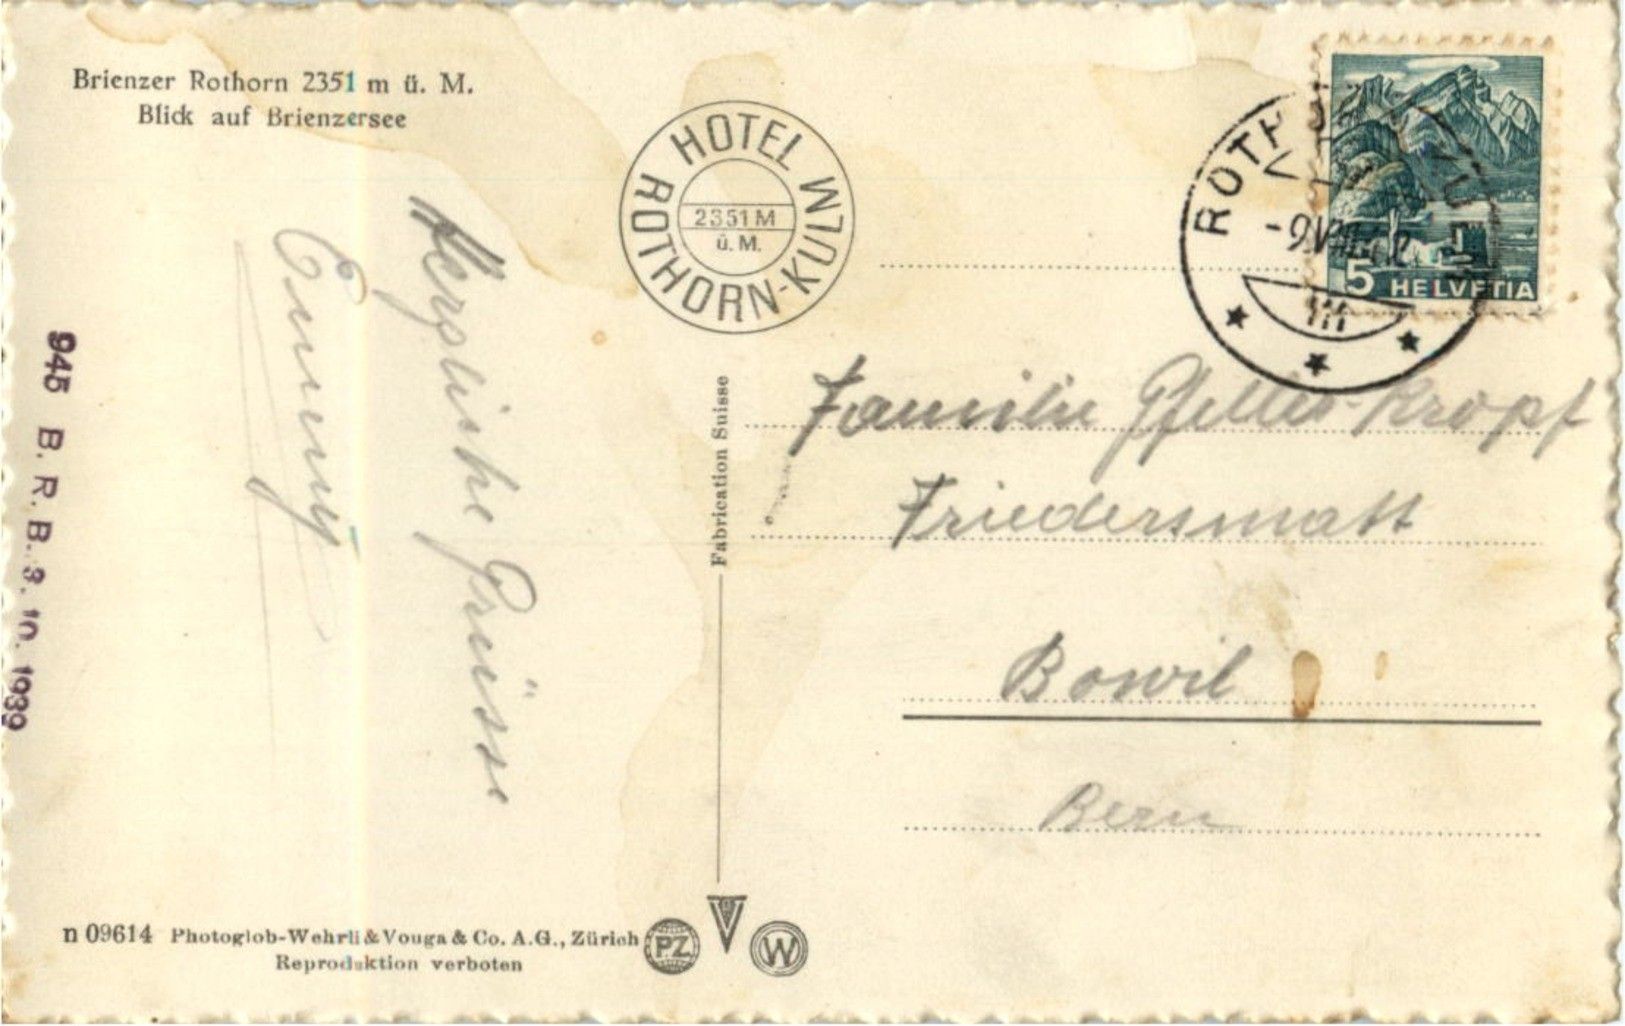 Brienzer Rothorn 2351 m ü. M.
Blick auf Brienzersee
HOTEL
ROTHORN-KULM
2351 M
ü. M.
5 HELVETIA
Herzliche Grüsse
Emmy
945 B.R.B. 3. 10. 1939
Fabrication Suisse
Familie Gfeller-Kropf
Friedersmatt
Bowil
Bern
n 09614 Photoglob-Wehrli & Vouga & Co. A.G., Zürich
Reproduktion verboten
PZ
W